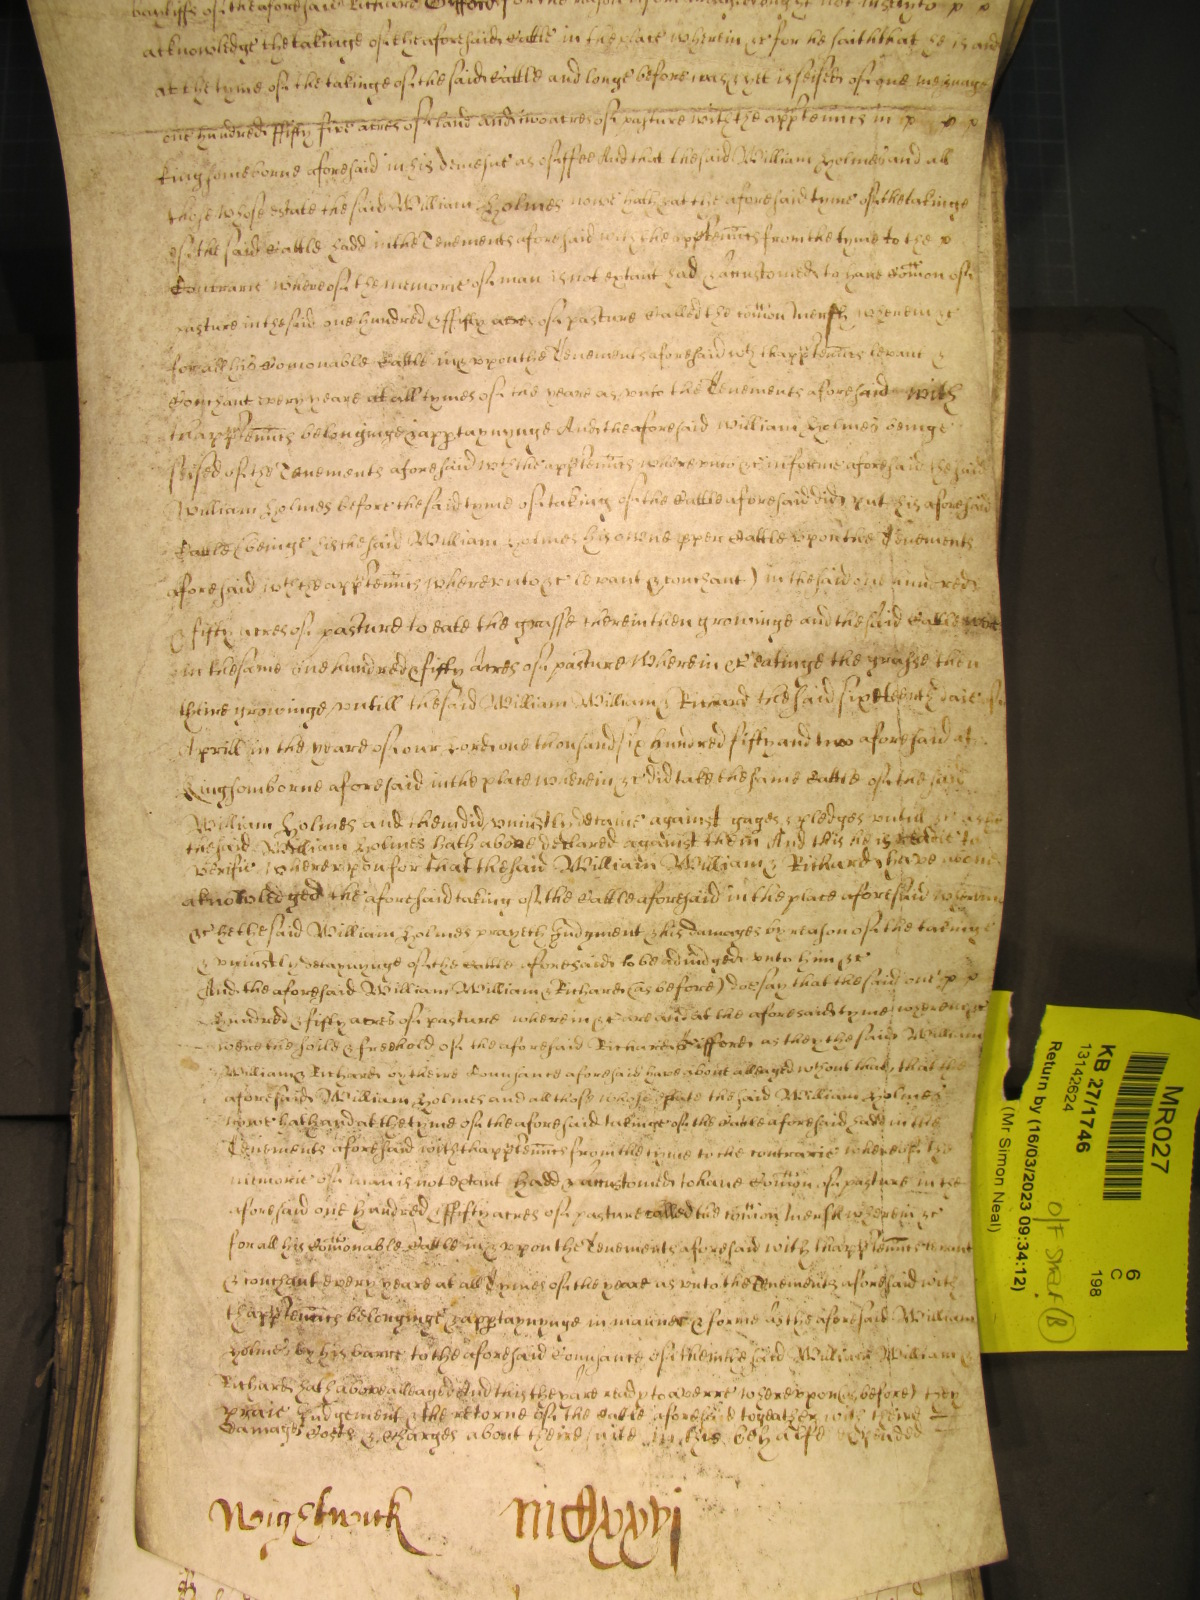 bayliffe of the aforesaid Richard Gifford for the reason before ought not Justly to p p
acknowledge the takinge of the aforesaid Cattle in the place wherein &c for he saith that he is and
at the tyme of the takinge of the said Cattle and longe before was & yet is seised of one mesuage
one hundred fiffty five acres of land and two acres of pasture with the apptennces in p p p
Kingsomeborne aforesaid in his demesne as of ffee And that the said William Holmes and all
those whose estate the said William Holmes nowe hath & att the aforesaid tyme of the takinge
of the said Cattle hadd in the Tenements aforesaid with the apptennces from the tyme to the p
Contrarie whereof the memorie of man is not extant had & accustomed to have Comon of
pasture in the said one hundred & fiffty acres of pasture Called the Comon Mersh wherein &c
for all his Comonable Cattle in & uppon the Tenements aforesaid wth thapptennces levant &
Couchant every yeare at all tymes of the yeare as unto the Tenements aforesaid with
thapptennces belonginge & apptaynynge And the aforesaid William Holmes beinge
seised of the Tenements aforesaid wth the apptennces whereunto &c in forme aforesaid the said
William Holmes before the said tyme of taking of the Cattle aforesaid did putt his aforesaid
Cattle (beinge his the said William Holmes his owne pper Cattle upon the Tenements
aforesaid wth the apptennces whereunto &c levant & couchant) in the said one hundred
& fifty acres of pasture to eate the grasse therein then growinge and the said Cattle were
in the same one hundred & fiffty acres of pasture wherein &c eatinge the grasse then
there growinge untill the said William William & Richard the said sixteenth daie of
Aprill in the yeare of our Lord one thousand six hundred fifty and two aforesaid att
Kingsomborne aforesaid in the place wherein &c did take the same Cattle of the said
William Holmes and them did uniustly detaine against gages & pledges untill &c as
the said William Holmes hath above declared against them And this he is readie to
verifie whereupon for that the said William William & Richard have above
aknowledged the aforesaid taking of the Cattle aforesaid in the place aforesaid wherein
&c he the said William Holmes prayeth Judgment & his damages by reason of the takinge
& uniustly detaynynge of the Cattle aforesaid to be adiudged unto him &c
And the aforesaid William William & Richard (as before) doe say that the said one p p
hundred & fifty acres of pasture wherein &c are and att the aforesaid tyme wherein &c
were the soile & freehold of the aforesaid Richard Gifford as they the said William
William & Richard by theire Connsance aforesaid have above alleaged wthout that, that the
aforesaid William Holmes and all those whose estate the said William Holmes
nowe hath and at the tyme of the aforesaid takinge of the Cattle aforesaid hadd in the
Tenements aforesaid with thapptennces from the tyme to the contrarie whereof the
memorie of man is not extant hadd & accustomed to have Comon of pasture in the
aforesaid one hundred & fifty acres of pasture called the Comon Mersh wherein &c
for all his Comonable Cattle in & uppon the Tenements aforesaid with thapptennces levant
& couchant every yeare at all tymes of the yeare as unto the Tenements aforesaid with
thapptennces belonginge & apptaynynge in manner & forme as the aforesaid William
Holmes by his barre to the aforesaid Connsance of them the said William William &
Richard hath above alleaged And this they are ready to averre whereupon (as before) they
praie Judgement & the retorne of the Cattle aforesaid togeather with theire
damages Costs & Charges about theire suite in this behalfe expended
Wightwick
MR027
KB 27/1746
13142624
Return by (16/03/2023 09:34:12)
(Mr Simon Neal)
6
C
198